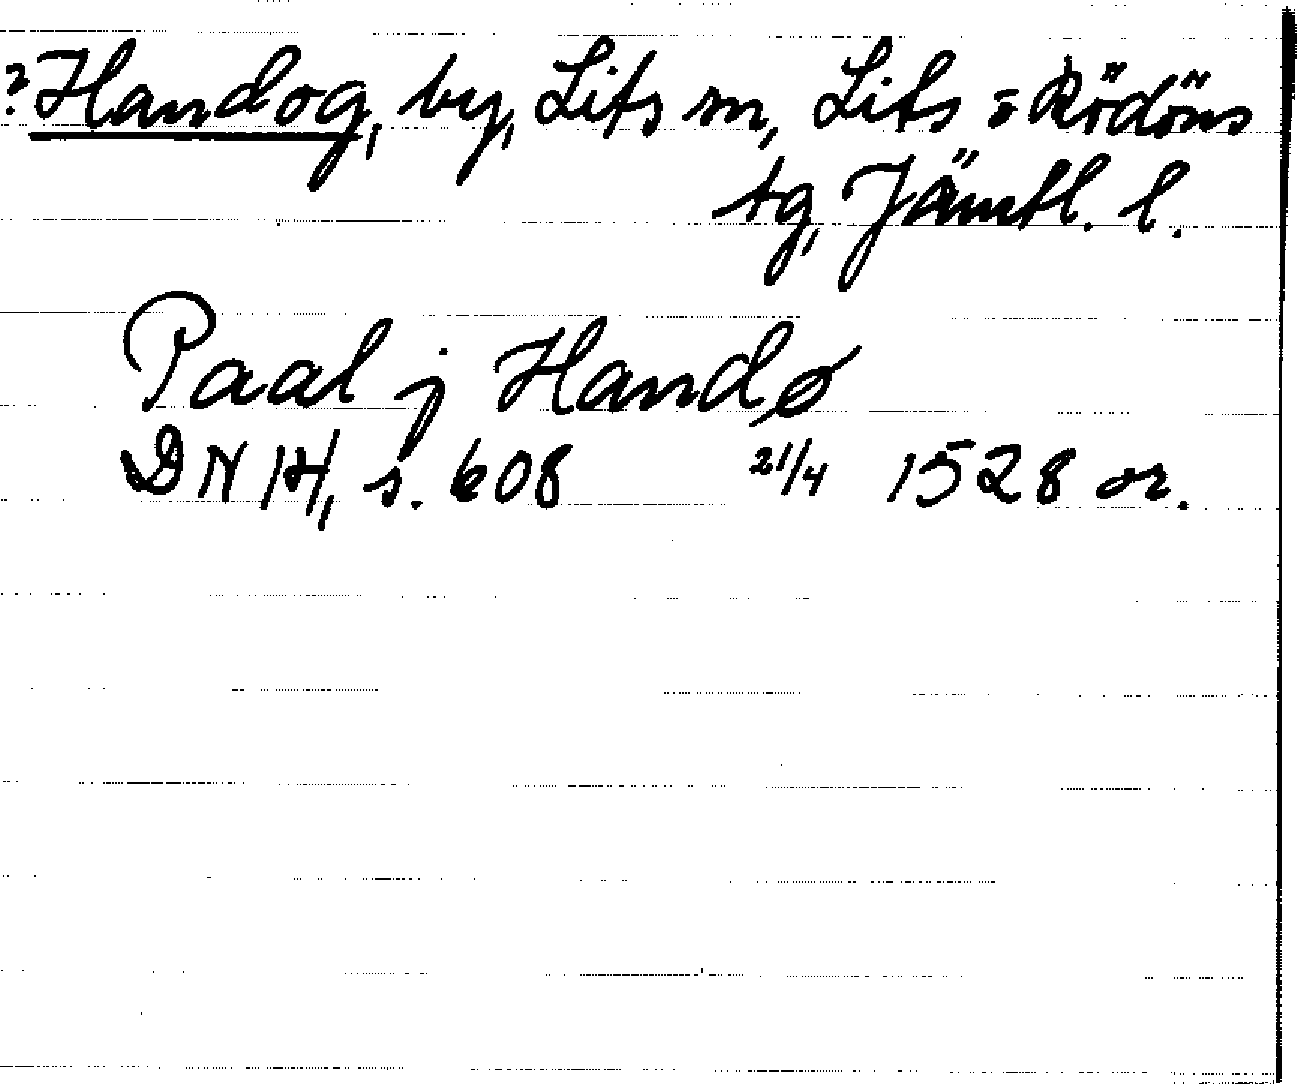 ?Handog, by, Lits sn, Lits o Rödöns
tg, Jämtl. l.
Paal j Handø
DN 14, s. 608 21/4 1528 or.